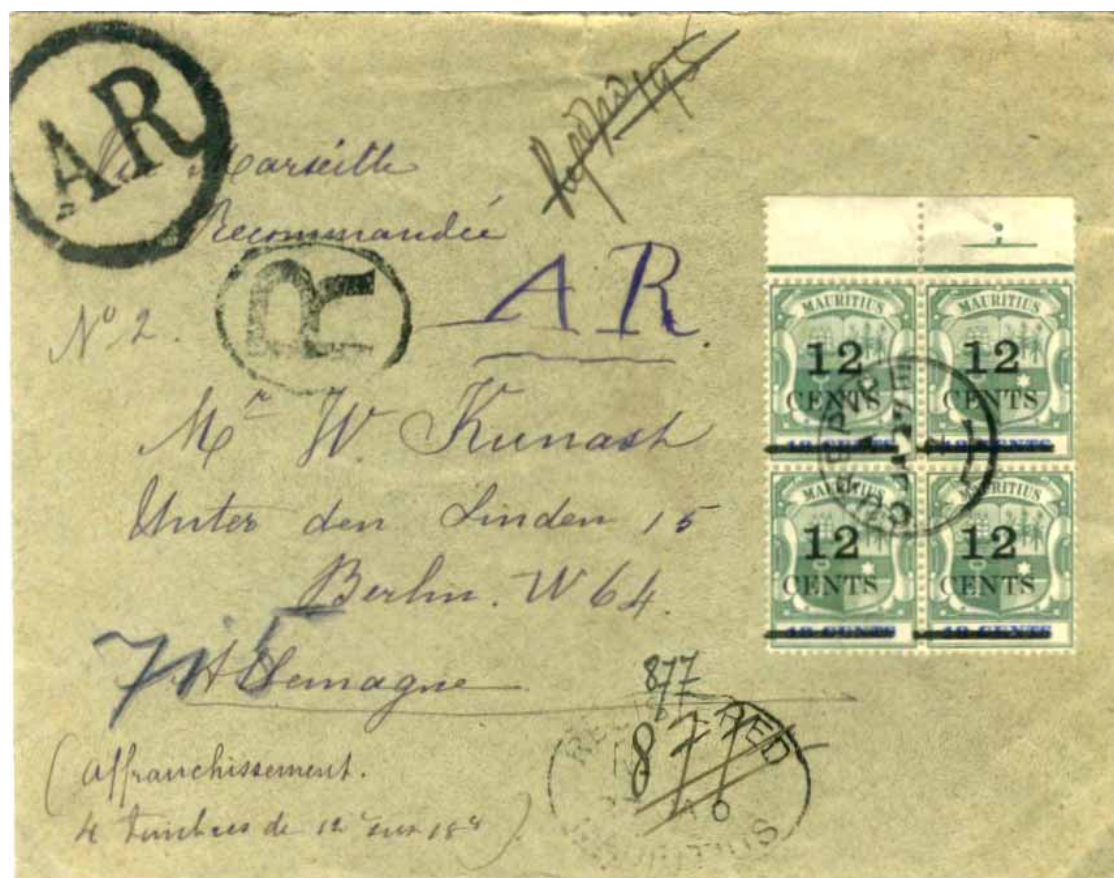 AR
Via Marseille
Recommandée
Regd no 195
No 2.
R
AR.
Mr W. Kunast
Unter den Linden 15
Berlin. W 64.
Allemagne
(Affranchissement.
4 timbres de 12c sur 18c)
877
877
REGISTERED
MAURITIUS
MAURITIUS
12
CENTS
18 CENTS
MAURITIUS
12
CENTS
18 CENTS
MAURITIUS
12
CENTS
18 CENTS
MAURITIUS
12
CENTS
18 CENTS
CUREPIPE